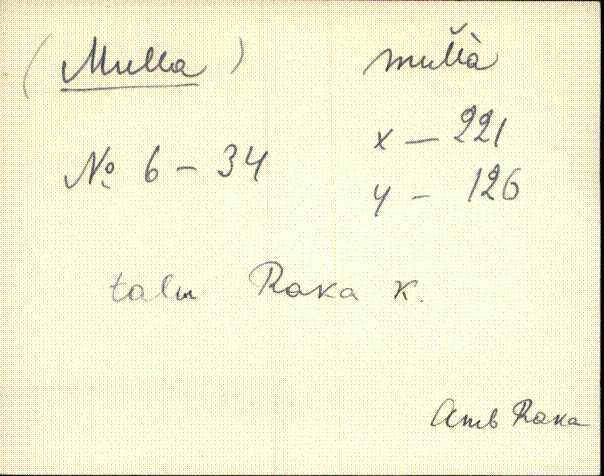 (Mulla) mul̆l̀à
№ 6 - 34 x - 221
y - 126
talu Raka k.
Amb Raka